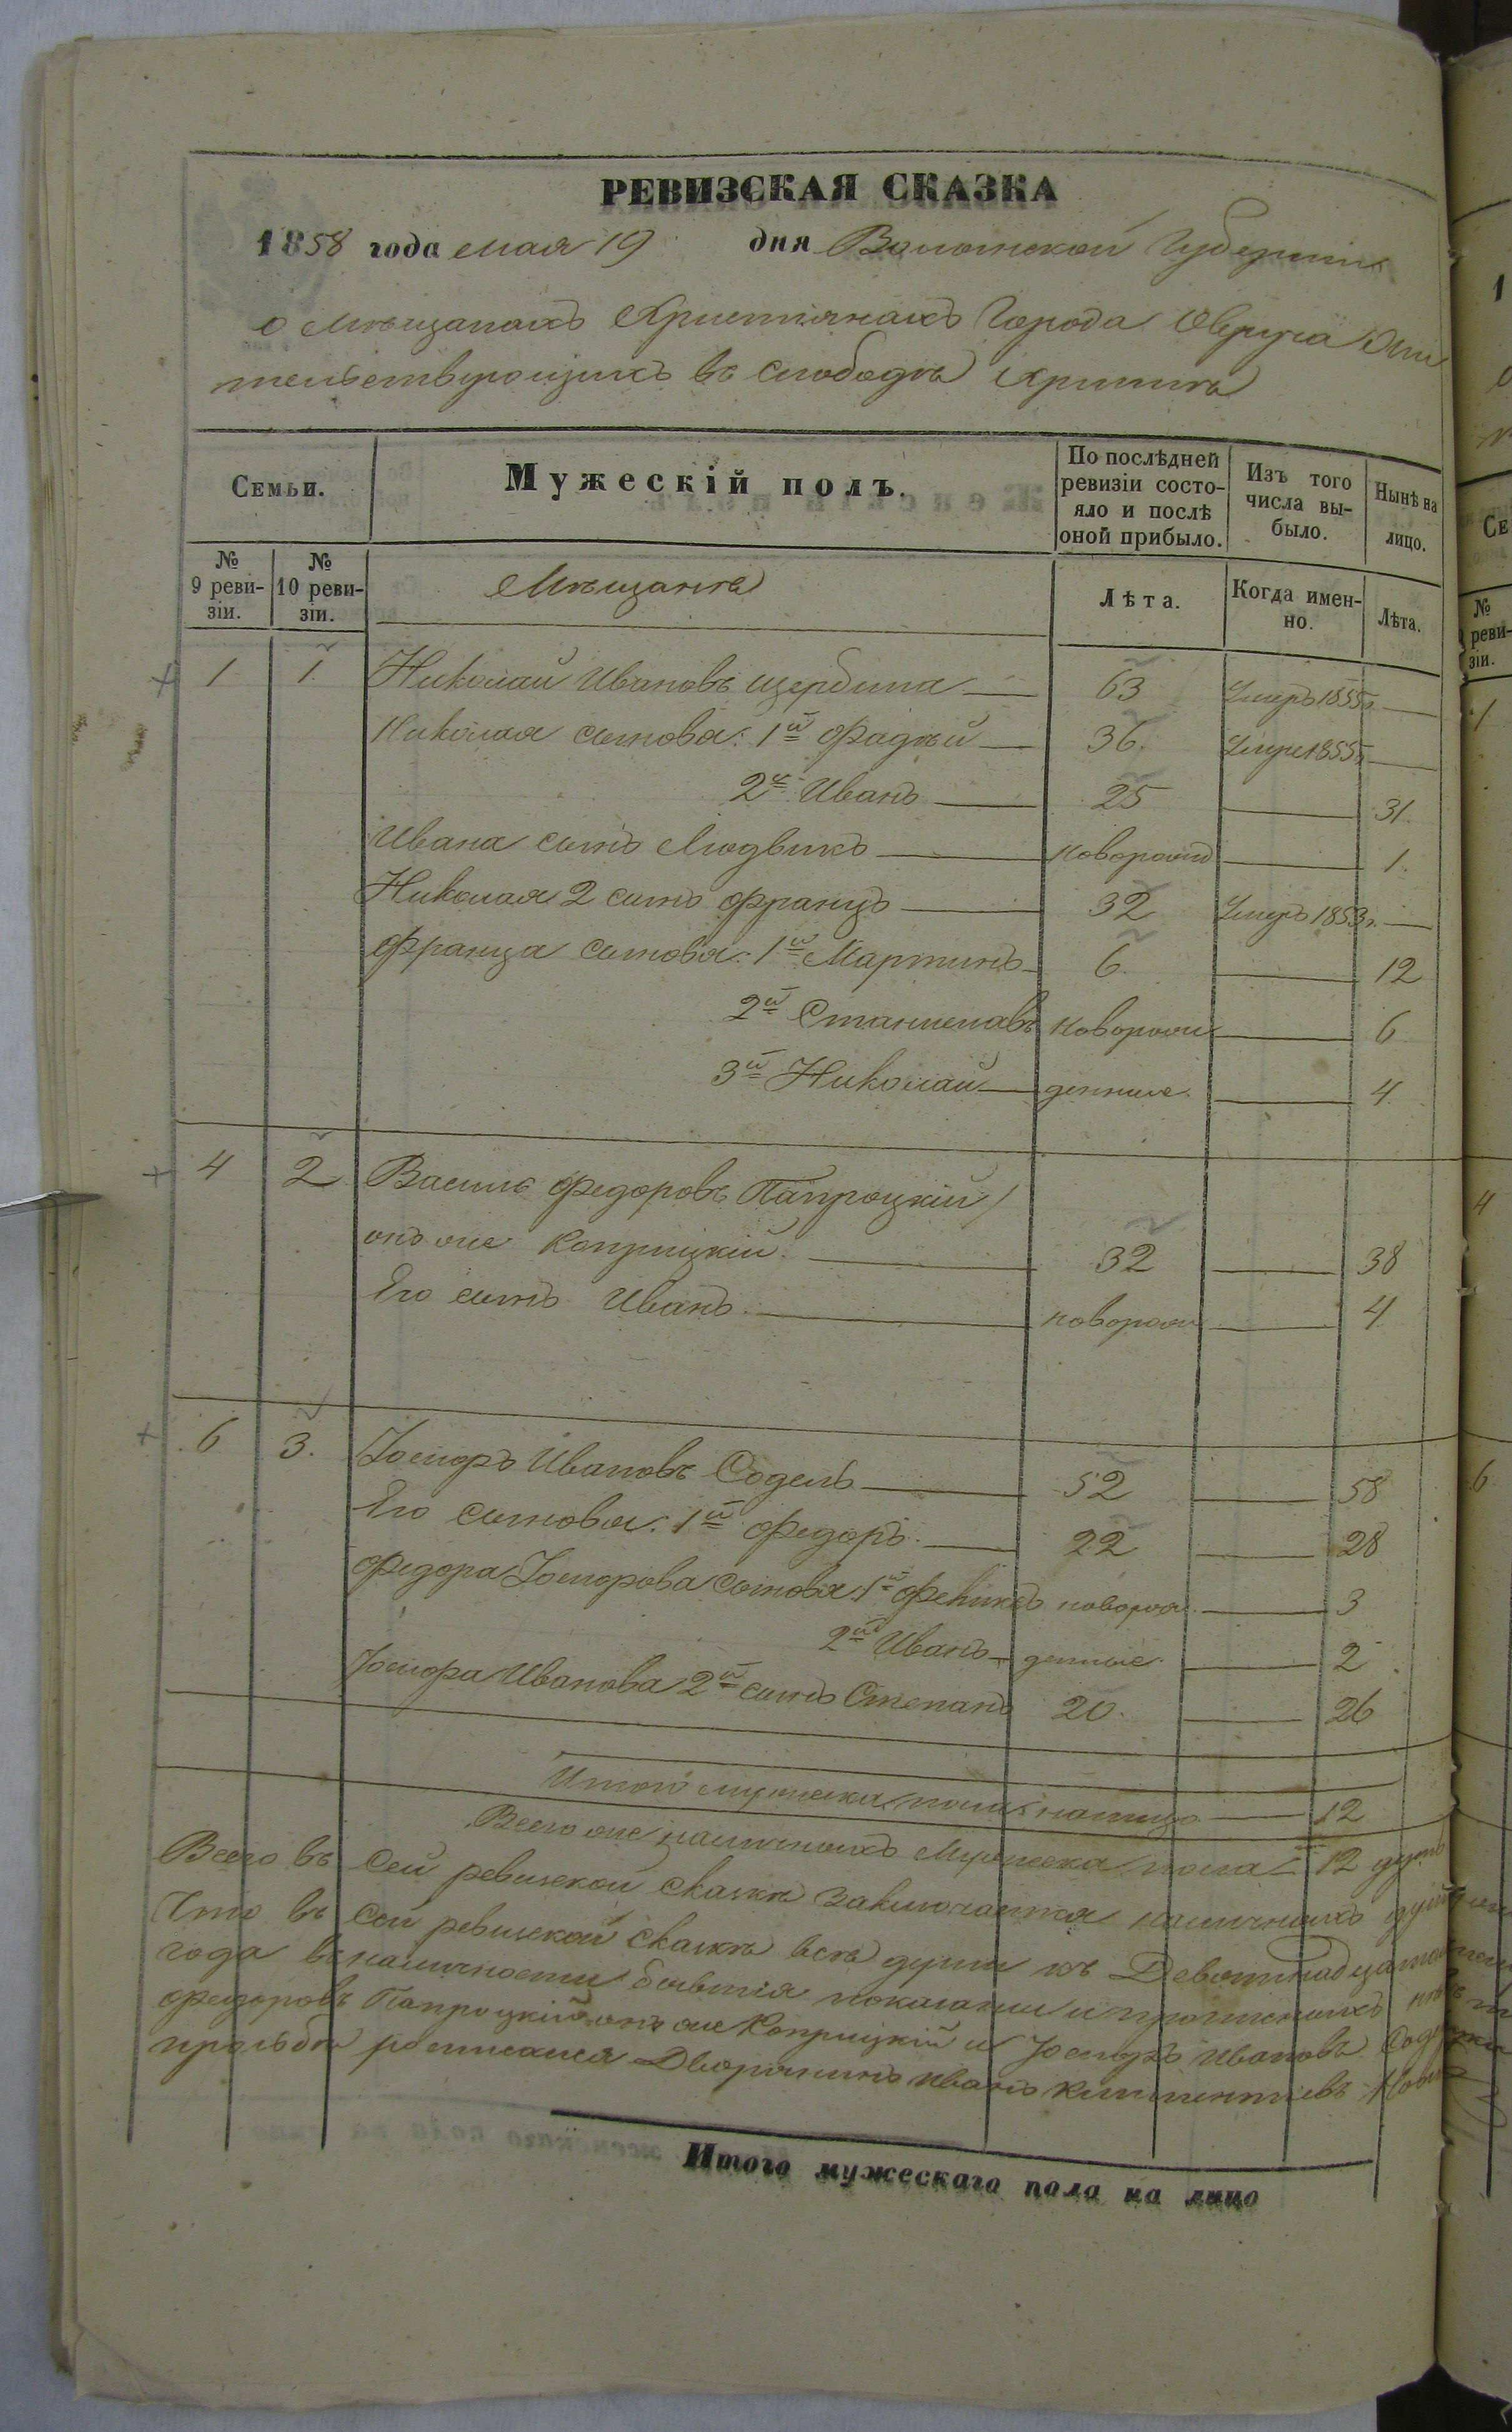 РЕВИЗСКАЯ СКАЗКА
1858 года мая 19 дня Волынской Губерніи
о мѣщанахъ Христіянахъ Города Овруча Жи
тельствующихъ въ слободѣ
Семьи. Мужескій полъ. По послѣдней ревизіи состо-яло и послѣ оной прибыло. Изъ того числа вы-было. Нынѣ на лицо.
№ 9 реви-зіи. № 10 реви-зіи. Мѣщанѣ Лѣта. Когда имен-но. Лѣта.
1 1. Николай Ивановъ Щербина 63 Умеръ 1855г.
Николая сыновья: 1й Фадѣй 36. Умре 1855г
2й Иванъ 25 31.
Ивана сынъ Людвикъ поворожд 1.
Николая 2 сынъ Францъ 32 Умеръ 1853г.
Франца сыновья: 1й Мартинъ 6. 12
2й Станиславъ новорож 6
3й Николай денные. 4
4 2 Василь Федоровъ Папроцкій/
онъ же Коприцкій. 32 38
Его сынъ Иванъ. новорож 4
6 3. Іосифъ Ивановъ Содель 52 58
Его сыновья: 1й Федоръ. 22 28
Федора Іосифова сыновья 1й Феликсъ новорож. 3
2й Иванъ денные. 2
Іосифа Иванова 2й сынъ Степанъ 20. 26
Итого мужеска пола налицо 12
Всего же наличныхъ Мужеска пола 12 душъ
Всего въ сей ревизской сказкѣ заключается наличныхъ
Что въ сей ревизской сказкѣ всѣ души къ
года въ наличности бывшія показаны и прописныхъ нѣтъ
Федоровъ Папроцкій онъ же Коприцкій и Іосифъ Ивановъ
прозьбѣ росписался Дворянинъ Иванъ
Итого мужескаго пола на лицо
1
Се
№
реви-
зіи.
1
4
6